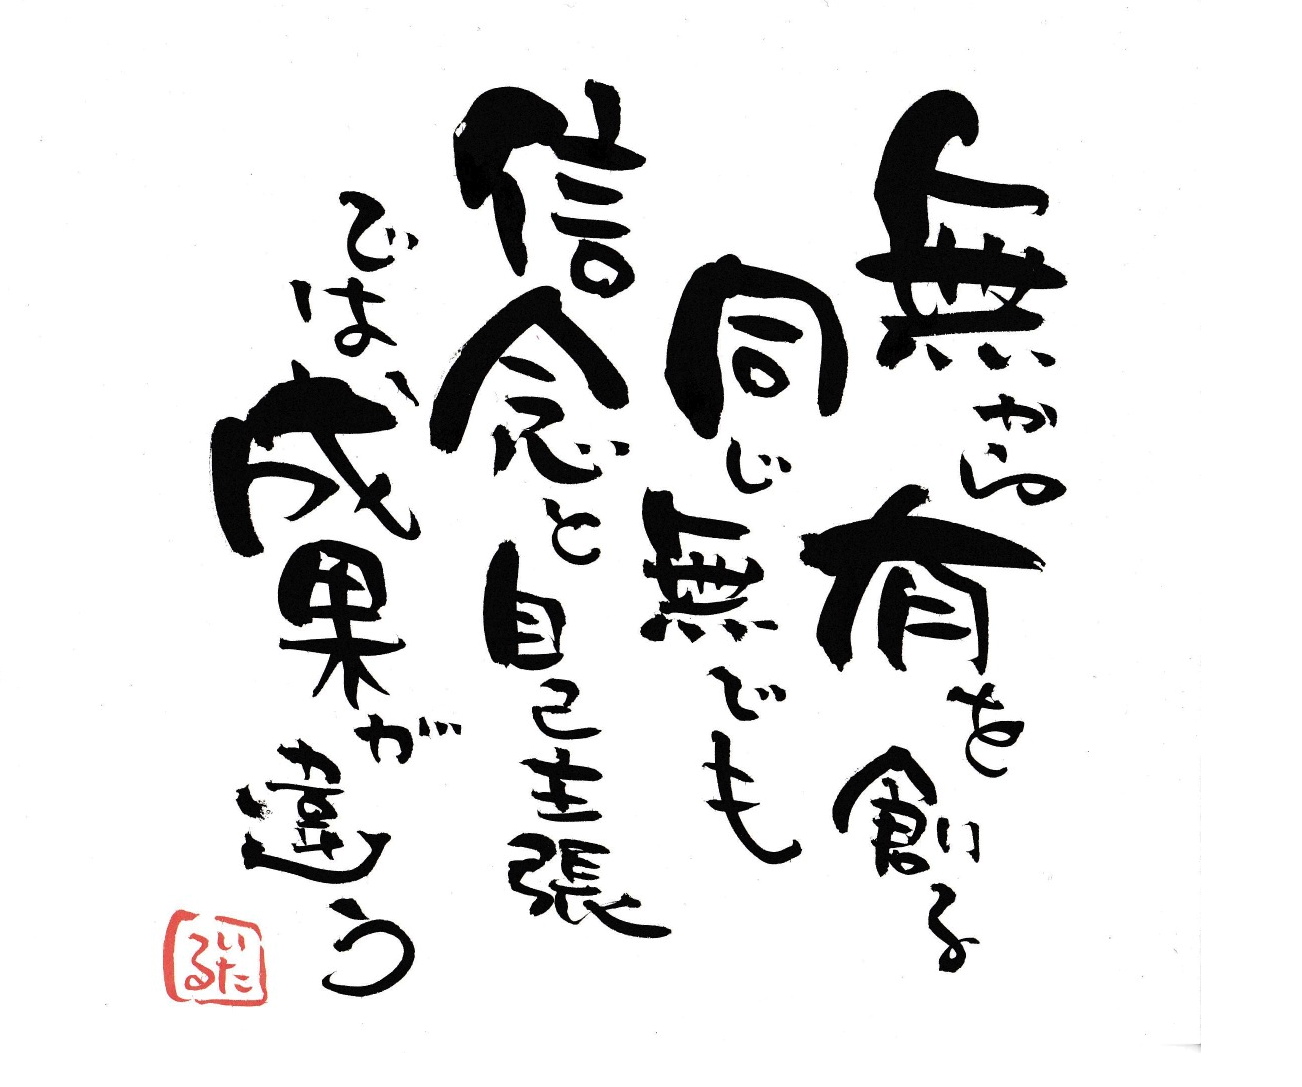 無から有を創る
同じ無でも
信念と自己主張
では、成果が違う
いたる